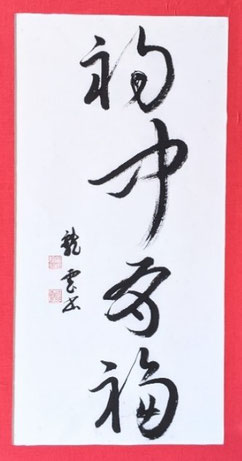 禍中有福
龍雲书